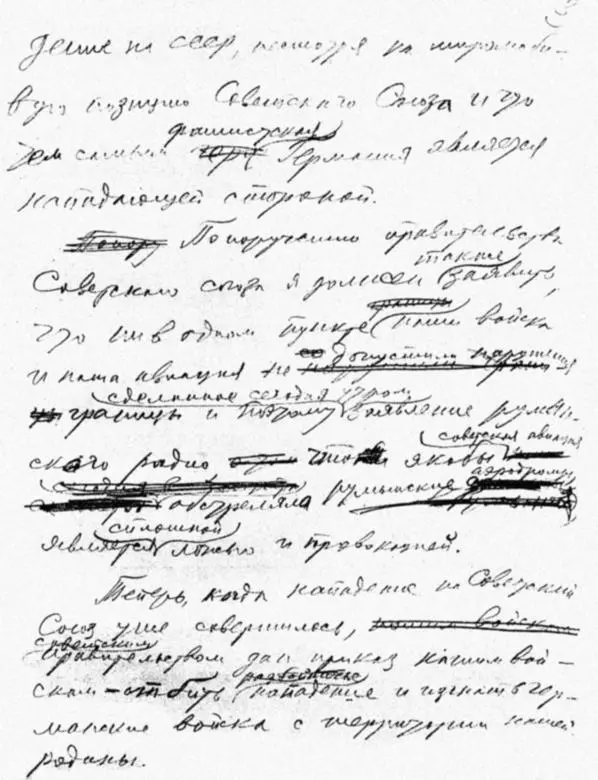 дение на СССР, несмотря на миролюби-
вую позицию Советского Союза и что
фашистская
тем самым Германия является
нападающей стороной.
По поручению правительства
также
Советского союза я должен заявить,
что ни в одном пункте наши войска
и наша авиация не допустили нарушения
сделанное сегодня утром
границы и поэтому заявление румын-
советская авиация
ского радио что якобы
аэродромы
обстреляла румынские
сплошной
является ложью и провокацией.
Теперь, когда нападение на Советский
Союз уже совершилось,
Советским
правительством дан приказ нашим вой-
разбойничье
скам – отбить нападение и изгнать гер-
манские войска с территории нашей
родины.